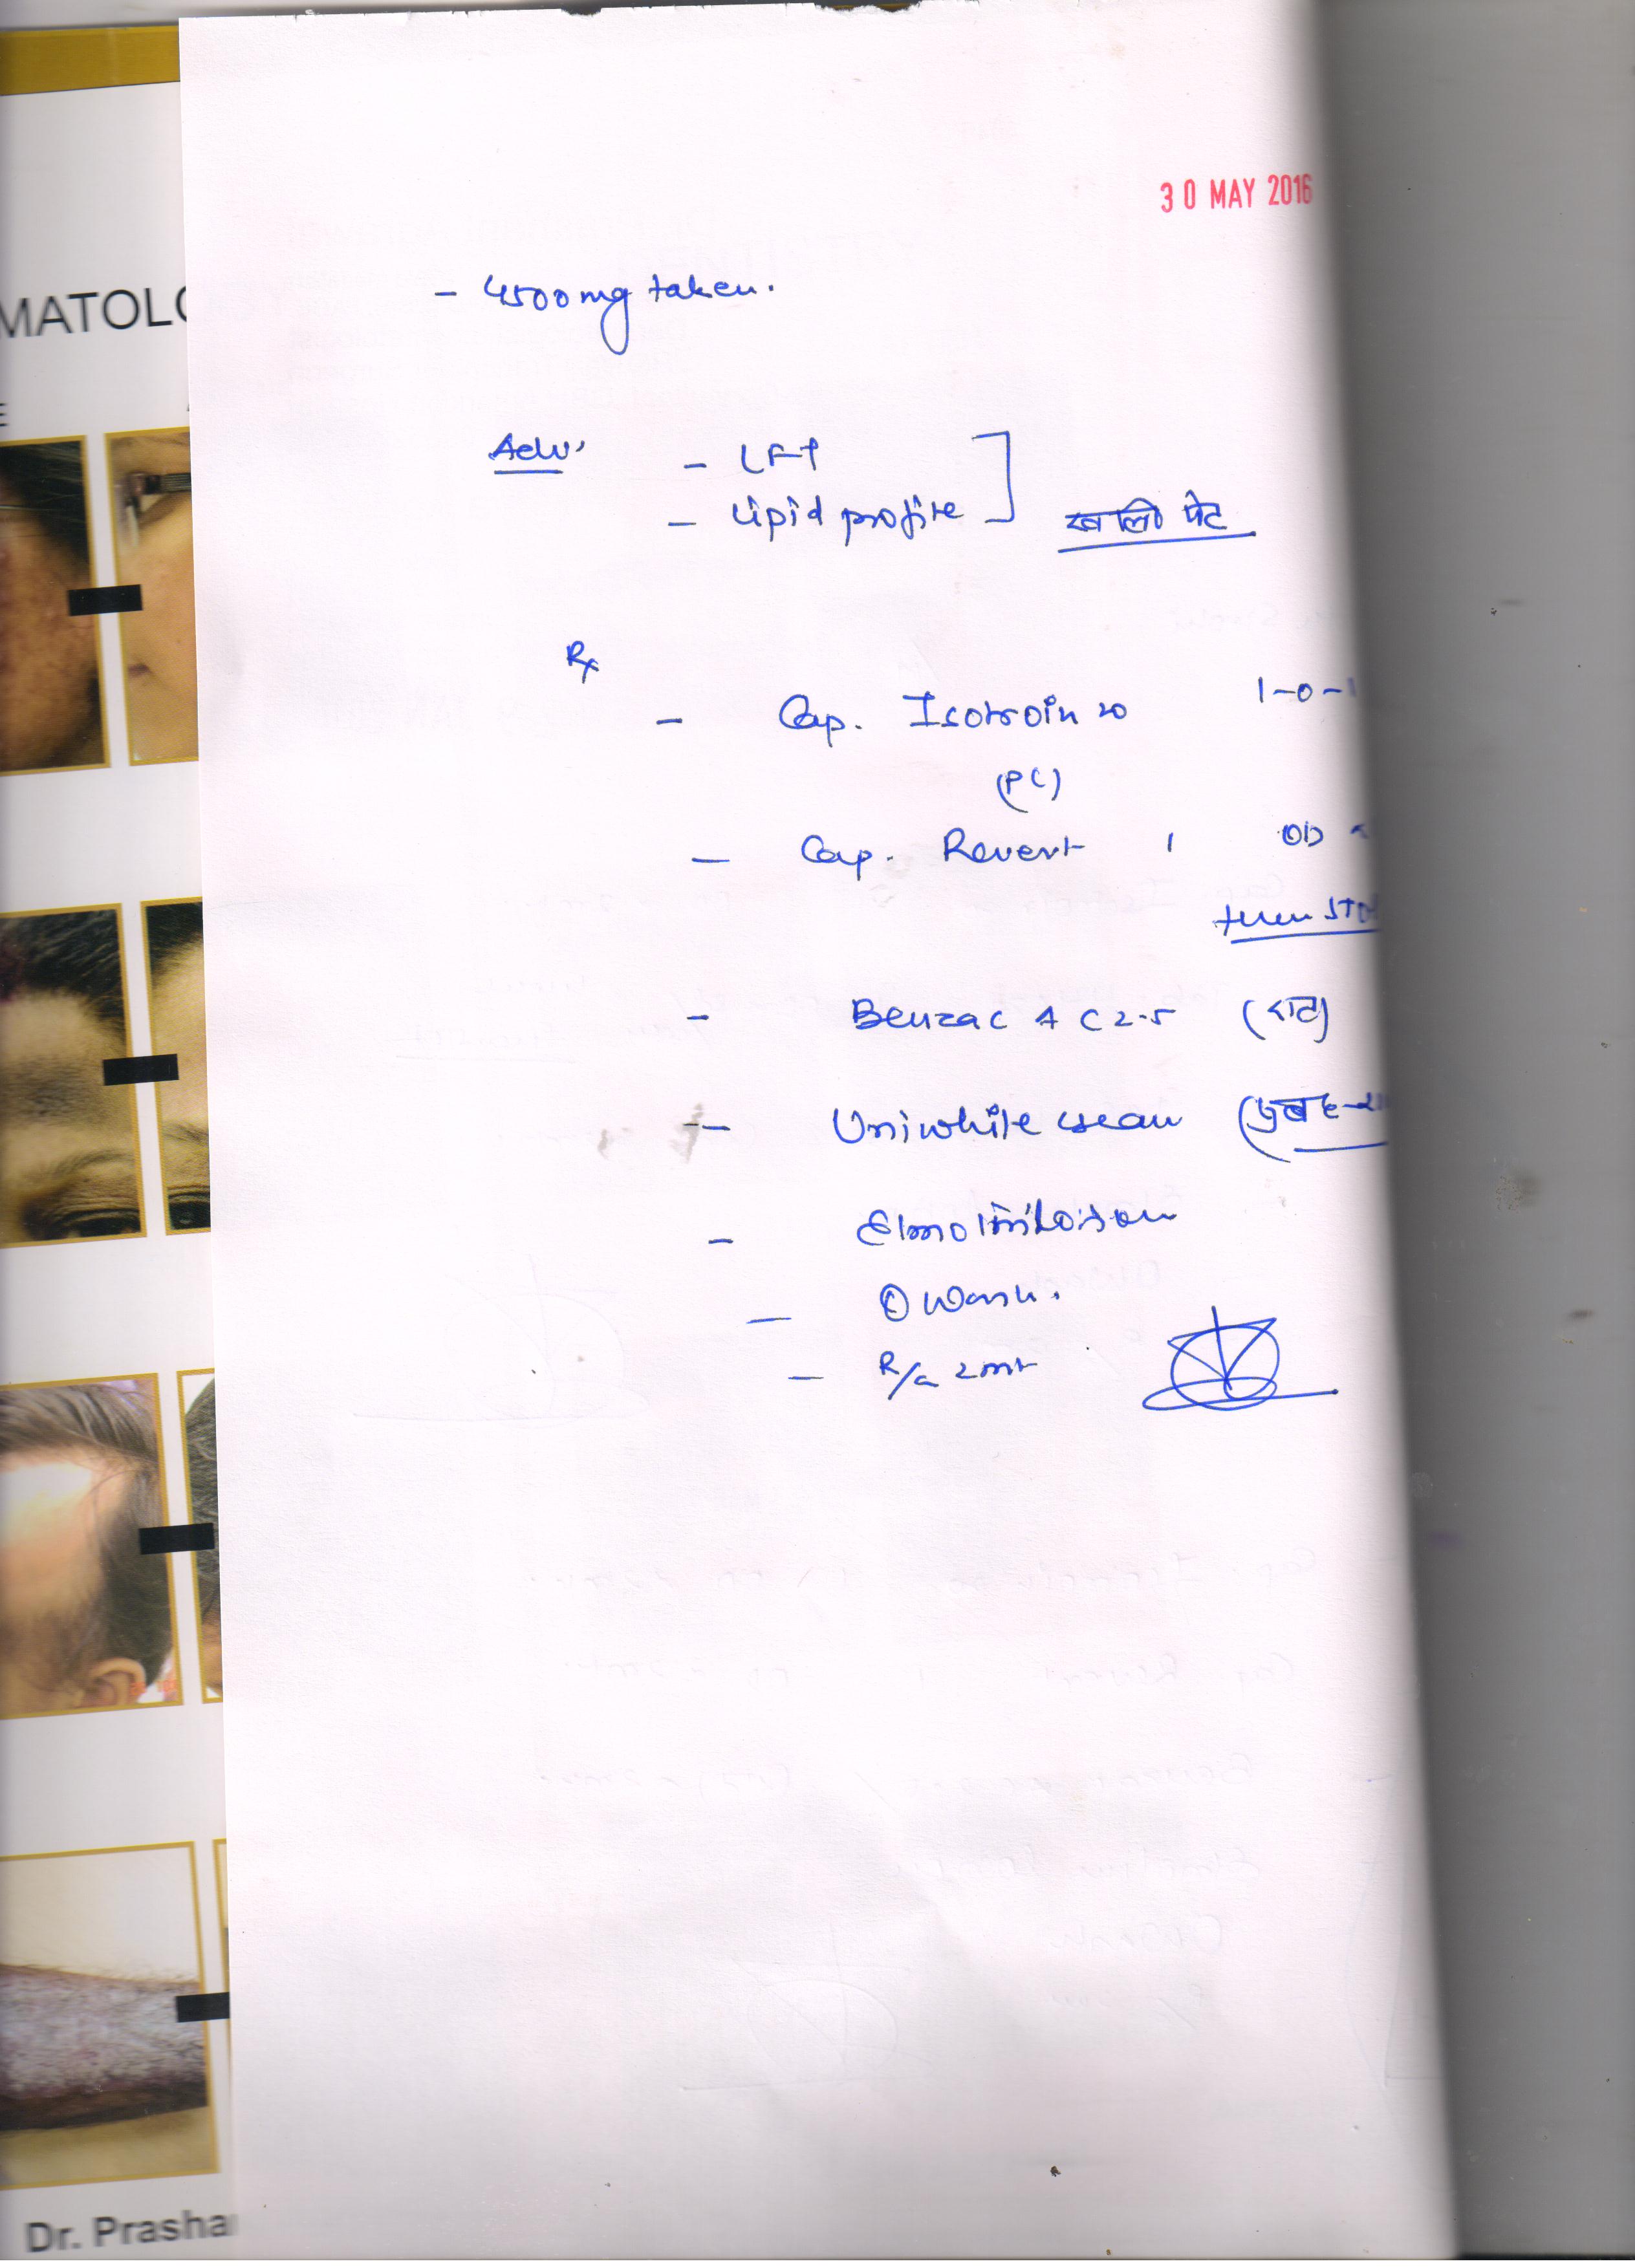 30 MAY 2016
MATOLO
- 4500mg taken.
Adv. - LFT
- Lipid profile ] खाली पेट
Rx
- Cap. Isotroin 20 1-0-1
(PC)
- Cap. Revert 1 OD
then STO
- Benzac AC 2.5 (रात)
- Uniwhite cream (सुबह-
- Elmolin lotion
- O wash.
- R/a 2mt
Dr. Prasha